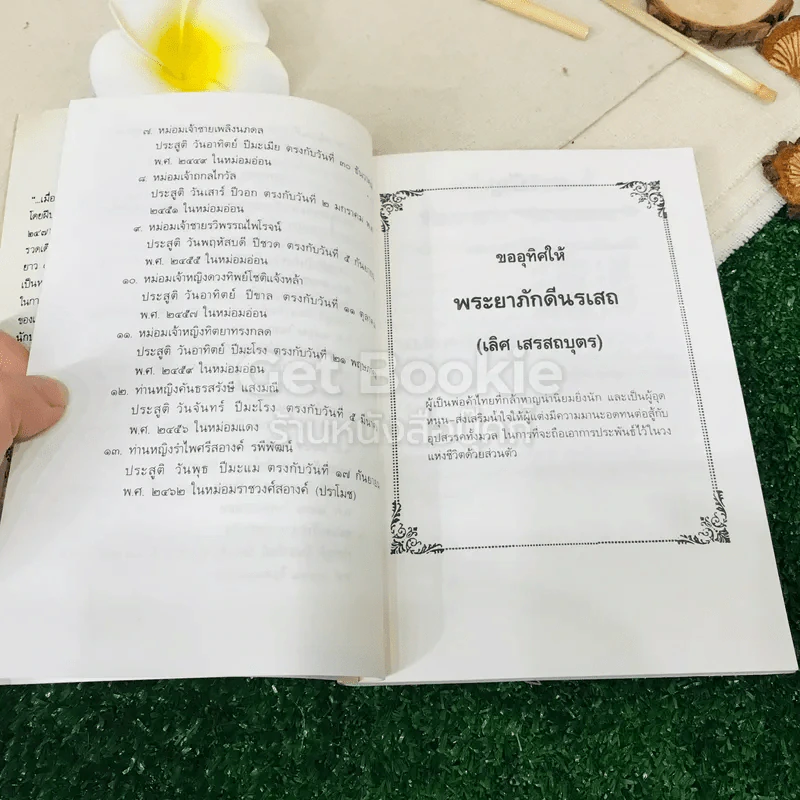 "...เมื่อ
โดยฝีป
๒๔๗
รวดเดี
ยาว
เป็นห
ในกา
ของเ
นักป
๗. หม่อมเจ้าชายเพลิงนภดล
ประสูติ วันอาทิตย์ ปีมะเมีย ตรงกับวันที่ ๓๐
พ.ศ. ๒๔๔๙ ในหม่อมอ่อน
๘. หม่อมเจ้าถกลไกวัล
ประสูติ วันเสาร์ ปีวอก ตรงกับวันที่ ๒ มกราคม
๒๔๕๑ ในหม่อมอ่อน
๙. หม่อมเจ้าชายรวิพรรณไพโรจน์
ประสูติ วันพฤหัสบดี ปีชวด ตรงกับวันที่ ๕ กันยายน
พ.ศ. ๒๔๕๕ ในหม่อมอ่อน
๑๐. หม่อมเจ้าหญิงดวงทิพย์โชติแจ้งหล้า
ประสูติ วันอาทิตย์ ปีขาล ตรงกับวันที่ ๑๑
พ.ศ. ๒๔๕๗ ในหม่อมอ่อน
๑๑. หม่อมเจ้าหญิงทิตยาทรงกลด
ประสูติ วันอาทิตย์ ปีมะโรง ตรงกับวันที่ ๒๑
พ.ศ. ๒๔๕๙ ในหม่อมอ่อน
๑๒. ท่านหญิงคันธรสรังษี แสงมณี
ประสูติ วันจันทร์ ปีมะโรง ตรงกับวันที่ ๕
พ.ศ. ๒๔๕๖ ในหม่อมแดง
๑๓. ท่านหญิงรำไพศรีสอางค์ รพีพัฒน์
ประสูติ วันพุธ ปีมะแม ตรงกับวันที่ ๑๗ กันยายน
พ.ศ. ๒๔๖๒ ในหม่อมราชวงศ์สอางค์ (ปราโมช)
ขออุทิศให้
พระยาภักดีนรเสถ
(เลิศ เศรสถบุตร)
ผู้เป็นพ่อค้าไทยที่กล้าหาญน่านิยมยิ่งนัก และเป็นผู้อุด
หนุน-ส่งเสริมน้ำใจให้ผู้แต่งมีความมานะอดทนต่อสู้กับ
อุปสรรคทั้งมวล ในการที่จะถือเอาการประพันธ์ไว้ในวง
แห่งชีวิตด้วยส่วนตัว
Get Bookie
ร้านหนังสือเก็ทบุ๊กกี้